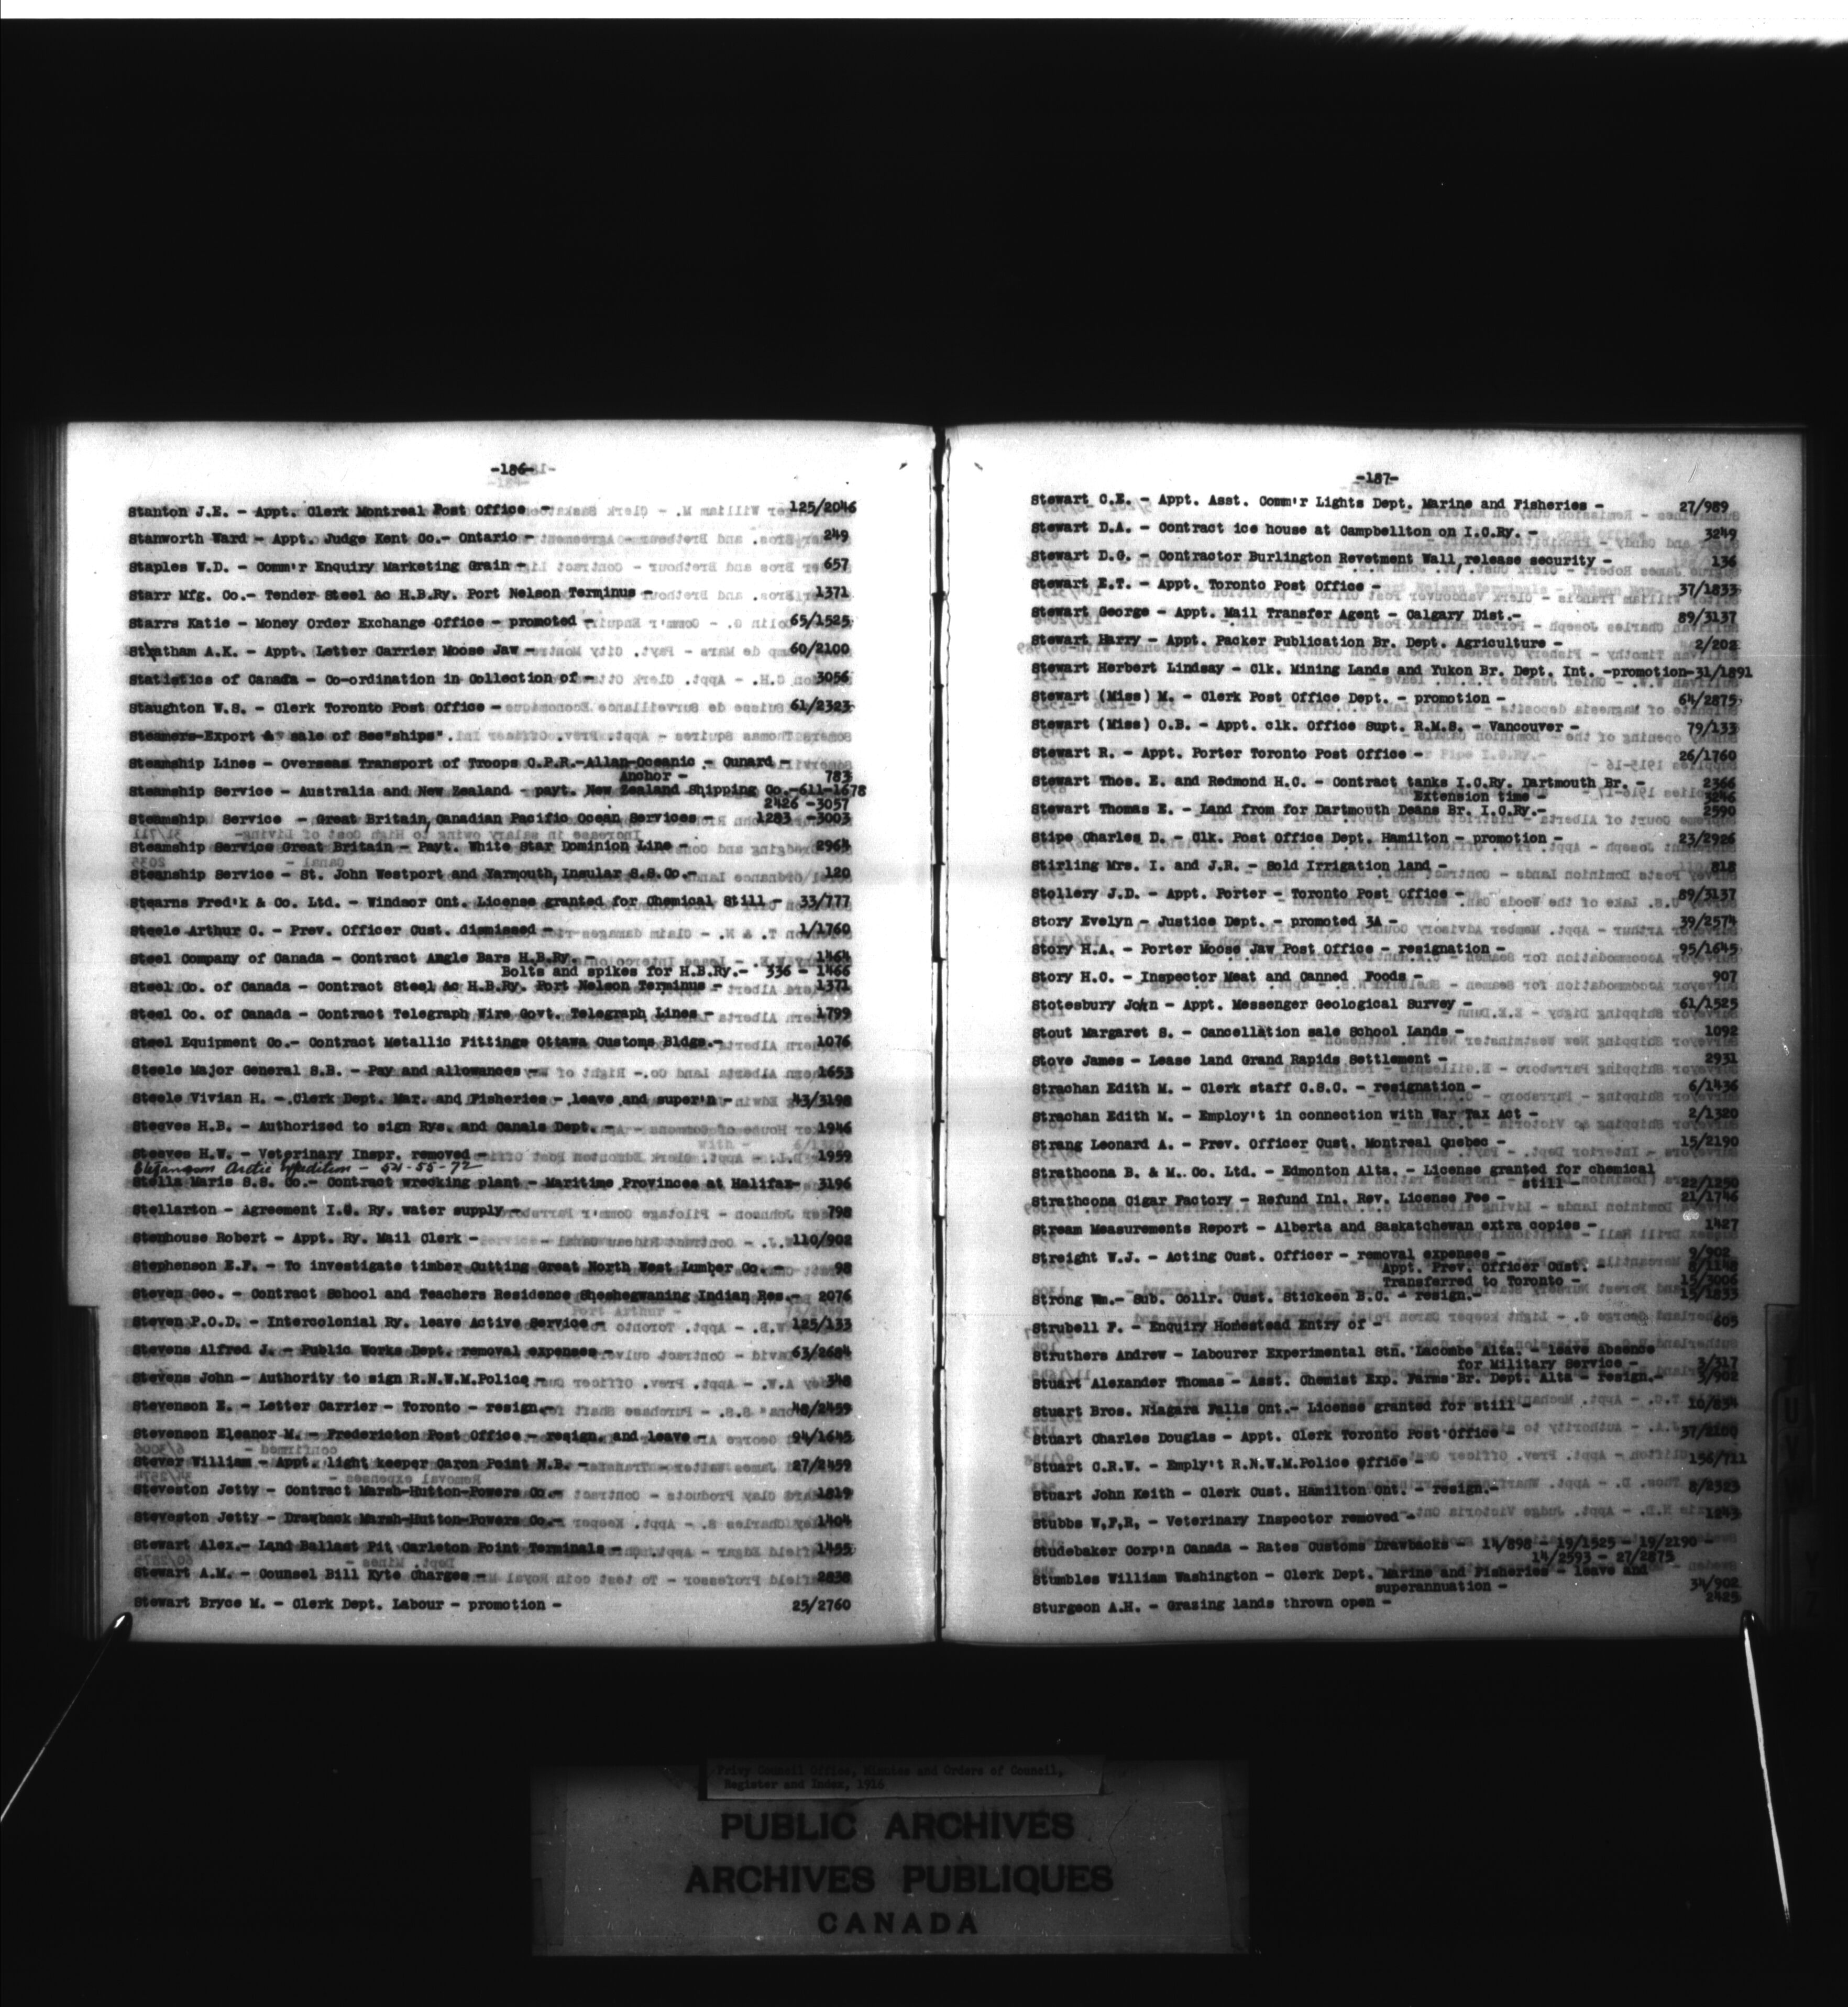 -186-
Stanton J.E. - Appt. Clerk Montreal Post Office - 125/2046
Stanworth Ward - Appt. Judge Kent Co.- Ontario - 249
Staples W.D. - Comm'r Enquiry Marketing Grain - 657
Starr Mfg. Co.- Tender Steel &c H.B.Ry. Port Nelson Terminus - 1371
Starrs Katie - Money Order Exchange Office - promoted - 65/1525
Statham A.K. - Appt. Letter Carrier Moose Jaw - 60/2100
Statistics of Canada - Co-ordination in Collection of - 3056
Staughton W.S. - Clerk Toronto Post Office - 61/2323
Steamers-Export &c sale of See"ships".
Steamship Lines - Overseas Transport of Troops C.P.R.-Allan-Oceanic - Cunard -
Anchor - 783
Steamship Service - Australia and New Zealand - payt. New Zealand Shipping Co.-611-1678
2426 -3057
Steamship Service - Great Britain, Canadian Pacific Ocean Services - 1283 -3003
Steamship Service Great Britain - Payt. White Star Dominion Line - 2964
Steamship Service - St. John Westport and Yarmouth, Insular S.S.Co.- 120
Stearns Fred'k & Co. Ltd. - Windsor Ont. License granted for Chemical Still - 33/777
Steele Arthur C. - Prev. Officer Cust. dismissed - 1/1760
Steel Company of Canada - Contract Angle Bars H.B.Ry. - 1464
Bolts and spikes for H.B.Ry.- 336 - 1466
Steel Co. of Canada - Contract Steel &c H.B.Ry. Port Nelson Terminus - 1371
Steel Co. of Canada - Contract Telegraph Wire Govt. Telegraph Lines - 1799
Steel Equipment Co.- Contract Metallic Fittings Ottawa Customs Bldgs.- 1076
Steele Major General S.B. - Pay and allowances - 1653
Steele Vivian H. - Clerk Dept. Mar. and Fisheries - leave and super'n - 43/3198
Steeves H.B. - Authorized to sign Rys. and Canals Dept. - 1946
Steeves H.W. - Veterinary Inspr. removed - 1959
Stefansson Arctic Expedition - 54-55-72
Stella Maris S.S. Co.- Contract wrecking plant - Maritime Provinces at Halifax- 3196
Stellarton - Agreement I.C. Ry. water supply - 798
Stenhouse Robert - Appt. Ry. Mail Clerk - 110/902
Stephenson E.F. - To investigate timber Cutting Great North West Lumber Co. - 98
Steven Geo. - Contract School and Teachers Residence Sheshegwaning Indian Res.- 2076
Steven P.O.D. - Intercolonial Ry. leave Active Service - 125/133
Stevens Alfred J. - Public Works Dept. removal expenses - 63/2604
Stevens John - Authority to sign R.N.W.M.Police - 348
Stevenson E. - Letter Carrier - Toronto - resign. 48/2459
Stevenson Eleanor M. - Fredericton Post Office - resign. and leave - 94/1645
Stever William - Appt. light keeper Caron Point N.B. - 27/2459
Steveston Jetty - Contract Marsh-Hutton-Powers Co.- 1819
Steveston Jetty - Drawback Marsh-Hutton-Powers Co.- 1404
Stewart Alex.- Land Ballast Pit Carleton Point Terminals - 1455
Stewart A.M. - Counsel Bill Kyte charges - 2838
Stewart Bryce M. - Clerk Dept. Labour - promotion - 25/2760
-187-
Stewart C.E. - Appt. Asst. Comm'r Lights Dept. Marine and Fisheries - 27/989
Stewart D.A. - Contract ice house at Campbellton on I.C.Ry. - 3249
Stewart D.G. - Contractor Burlington Revetment Wall, release security - 136
Stewart E.T. - Appt. Toronto Post Office - 37/1833
Stewart George - Appt. Mail Transfer Agent - Calgary Dist.- 89/3137
Stewart Harry - Appt. Packer Publication Br. Dept. Agriculture - 2/202
Stewart Herbert Lindsay - Clk. Mining Lands and Yukon Br. Dept. Int. -promotion-31/1891
Stewart (Miss) M. - Clerk Post Office Dept. - promotion - 64/2875
Stewart (Miss) O.B. - Appt. clk. Office Supt. R.M.S. - Vancouver - 79/133
Stewart R. - Appt. Porter Toronto Post Office - 26/1760
Stewart Thos. E. and Redmond H.C. - Contract tanks I.C.Ry. Dartmouth Br. - 2366
Extension time - 3246
Stewart Thomas E. - Land from for Dartmouth Deans Br. I.C.Ry.- 2590
Stipe Charles D. - Clk. Post Office Dept. Hamilton - promotion - 23/2926
Stirling Mrs. I. and J.R. - Sold Irrigation land - 818
Stollery J.D. - Appt. Porter - Toronto Post Office - 89/3137
Story Evelyn - Justice Dept. - promoted 3A - 39/2574
Story H.A. - Porter Moose Jaw Post Office - resignation - 95/1645
Story H.C. - Inspector Meat and Canned Foods - 907
Stotesbury John - Appt. Messenger Geological Survey - 61/1525
Stout Margaret S. - Cancellation sale School Lands - 1092
Stove James - Lease land Grand Rapids Settlement - 2931
Strachan Edith M. - Clerk staff C.S.C. - resignation - 6/1436
Strachan Edith M. - Employ't in connection with War Tax Act - 2/1320
Strang Leonard A. - Prev. Officer Cust. Montreal Quebec - 15/2190
Strathcona B. & M. Co. Ltd. - Edmonton Alta. - License granted for chemical
still - 22/1250
Strathcona Cigar Factory - Refund Inl. Rev. License Fee - 21/1746
Stream Measurements Report - Alberta and Saskatchewan extra copies - 1427
Streight W.J. - Acting Cust. Officer - removal expenses - 9/902
Appt. Prev. Officer Cust. - 8/1148
Transferred to Toronto - 15/3006
Strong Wm.- Sub. Collr. Cust. Stickeen B.C. - resign.- 15/1833
Strubell F. - Enquiry Homestead Entry of - 605
Struthers Andrew - Labourer Experimental Stn. Lacombe Alta. - leave absence
for Military Service - 3/317
Stuart Alexander Thomas - Asst. Chemist Exp. Farms Br. Dept. Alta - resign.- 3/902
Stuart Bros. Niagara Falls Ont.- License granted for still - 10/834
Stuart Charles Douglas - Appt. Clerk Toronto Post Office - 37/2100
Stuart C.R.W. - Emply't R.N.W.M.Police office - 156/711
Stuart John Keith - Clerk Cust. Hamilton Ont. - resign.- 8/2323
Stubbs W.F.R, - Veterinary Inspector removed - 1243
Studebaker Corp'n Canada - Rates Customs Drawbacks - 14/898 - 19/1525 - 19/2190 -
14/2593 - 27/2875
Stumbles William Washington - Clerk Dept. Marine and Fisheries - leave and
superannuation - 34/902
Sturgeon A.H. - Grazing lands thrown open - 2425
Privy Council Office, Minutes and Orders of Council,
Register and Index, 1916
PUBLIC ARCHIVES
ARCHIVES PUBLIQUES
CANADA